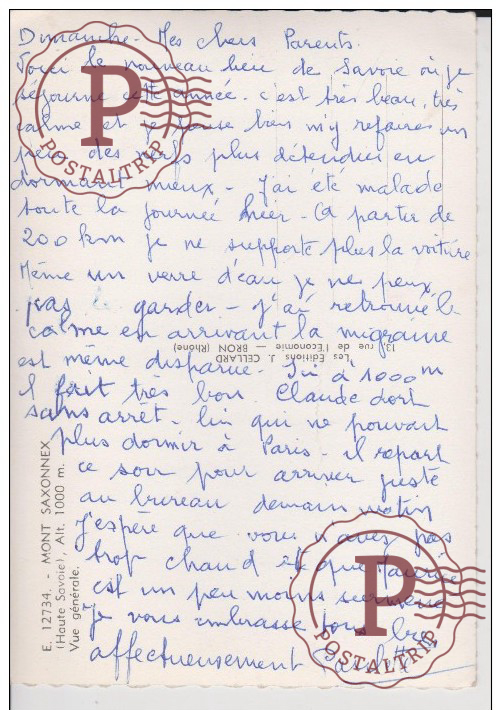 Dimanche - Mes chers Parents.
Voici le nouveau lieu de Savoie où je
séjourne cette année. c'est très beau, très
calme et je pense bien m'y refaire un
peu des nerfs plus détendus en
dormant mieux - J'ai été malade
toute la journée hier - A partir de
200 km je ne supporte plus la voiture
Même un verre d'eau je ne peux
pas le garder - J'ai retrouvé le
calme en arrivant la migraine
est même disparue - Ici à 1000 m
il fait très bon. Claude dort
sans arrêt - lui qui ne pouvait
plus dormir à Paris - il repart
ce soir pour arriver juste
au bureau demain matin
J'espère que vous n'avez pas
trop chaud et que
est un peu moins
Je vous embrasse tous bien
affectueusement
Les Editions J. CELLARD
13, rue de l'Economie — BRON (Rhône)
E. 12734. - MONT SAXONNEX
(Haute Savoie), Alt. 1000 m.
Vue générale.
P
POSTALTRIP
P
POSTALTRIP